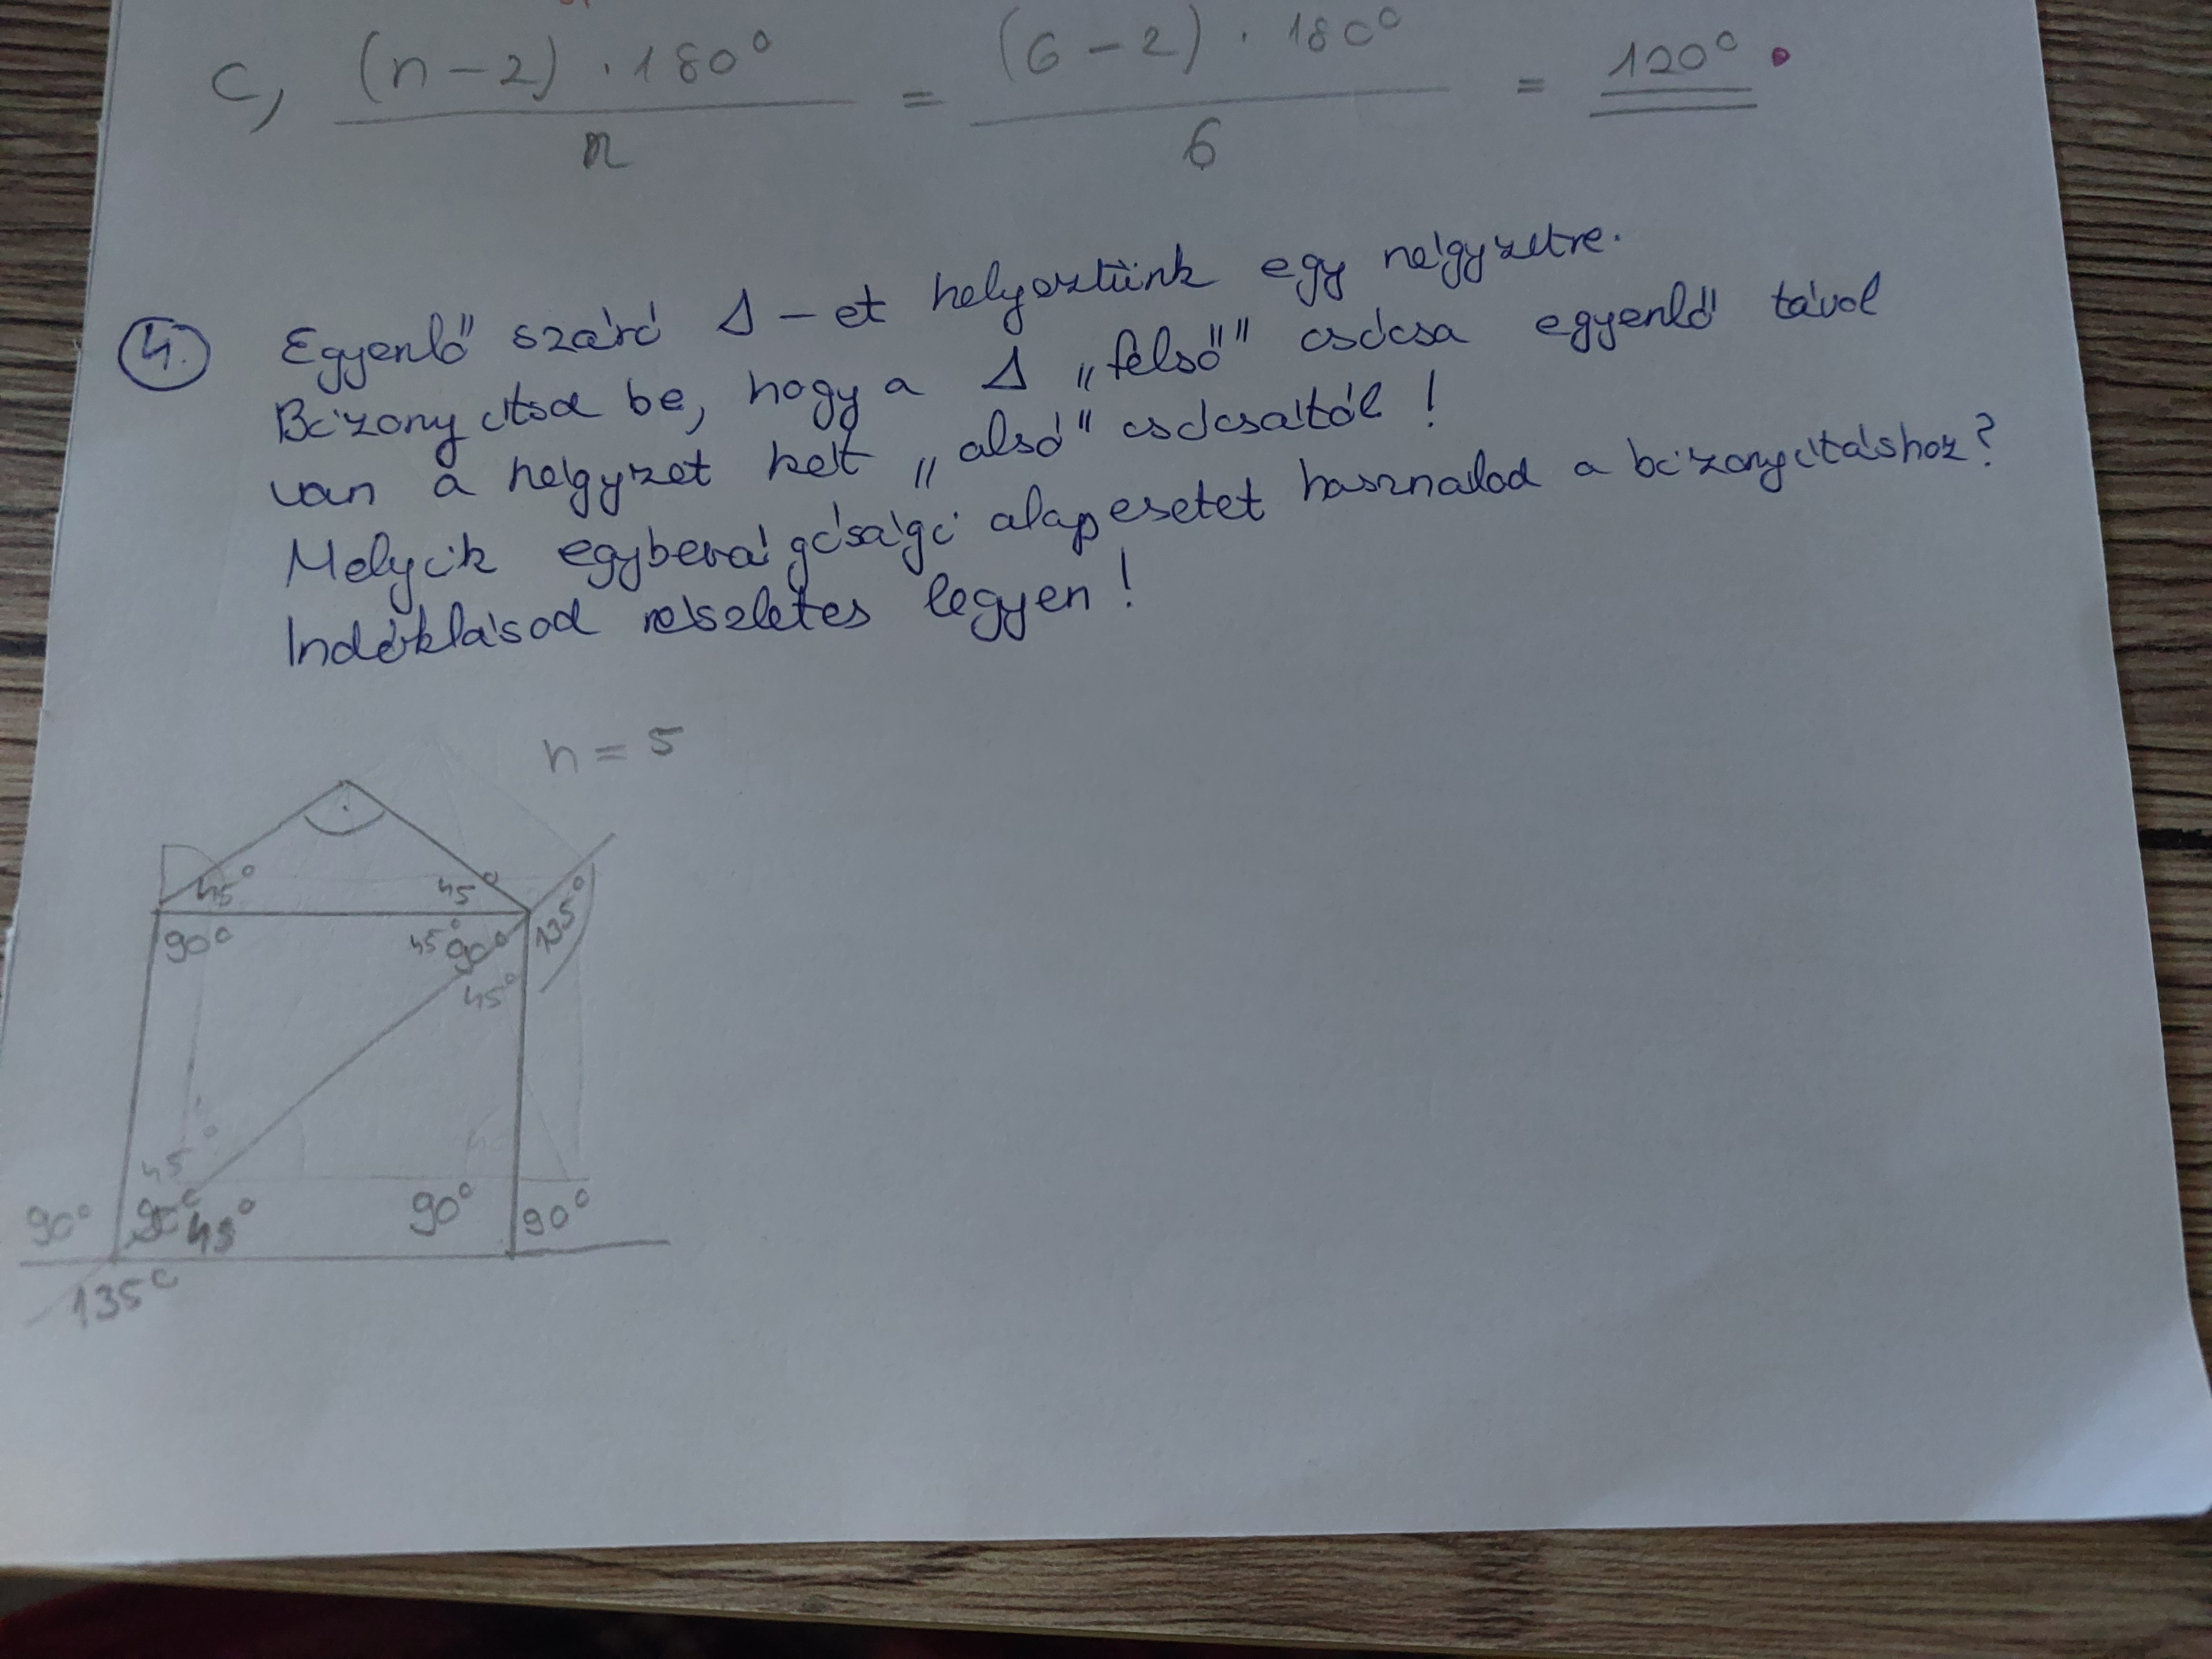 c, (n-2)·180° / n = (6-2)·180° / 6 = 120°
4. Egyenlő szárú Δ-et helyeztünk egy négyzetre.
Bizonyítsd be, hogy a Δ „felső" csúcsa egyenlő távol
van a négyzet két „alsó" csúcsától!
Melyik egybevágósági alapesetet használod a bizonyításhoz?
Indoklásod részletes legyen!
n = 5
45° 45°
90° 45° 90° 135°
45°
45°
90° 45° 90° 90°
135°